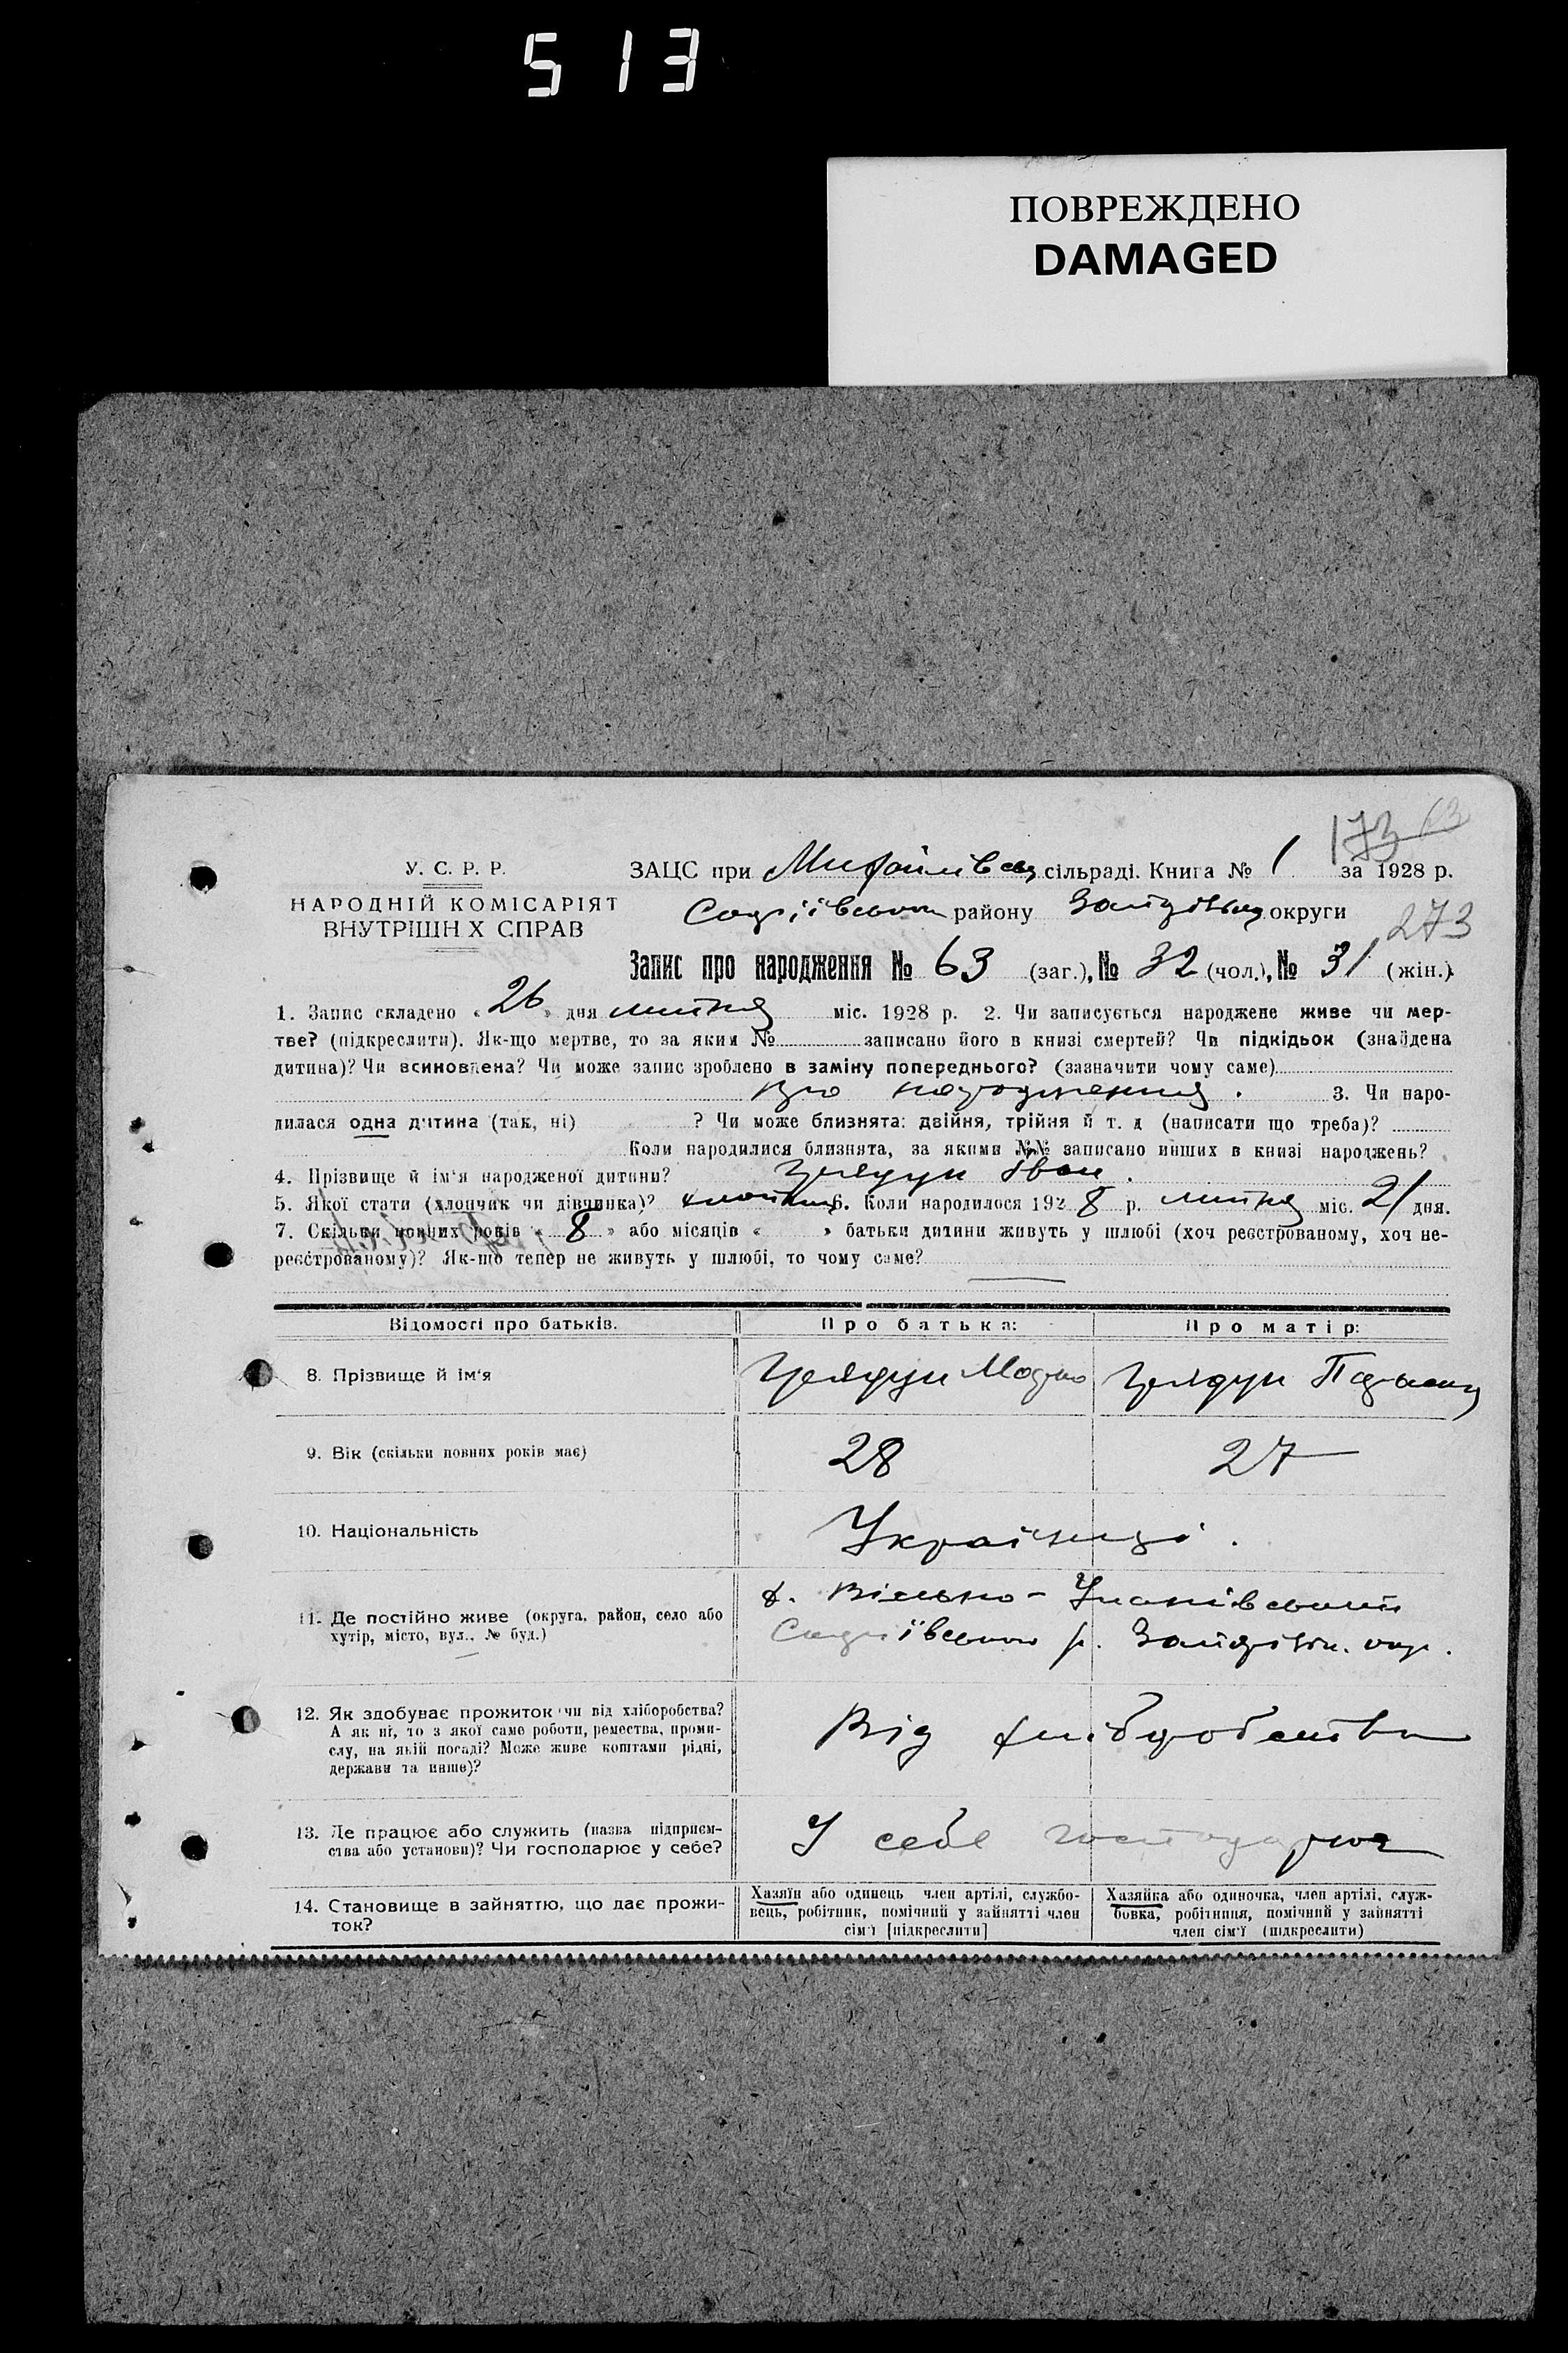 513
ПОВРЕЖДЕНО
DAMAGED
173 63
У. С. Р. Р.
НАРОДНІЙ КОМІСАРІЯТ
ВНУТРІШН Х СПРАВ
ЗАЦС при Михайлівськ сільраді. Книга № 1 за 1928 р.
Софіївського району округи
273
Запис про народження № 63 (заг.), № 32 (чол.), № 31 (жін.)
1. Запис складено « 26 » дня липня міс. 1928 р. 2. Чи записується народжене живе чи мер-
тве? (підкреслити). Як-що мертве, то за яким № записано його в книзі смертей? Чи підкідьок (знайдена
дитина)? Чи всиновлена? Чи може запис зроблено в заміну попереднього? (зазначити чому саме)
про народження. 3. Чи наро-
дилася одна дитина (так, ні) ? Чи може близнята: двійня, трійня й т. д (написати що треба)?
Коли народилися близнята, за якими №№ записано инших в книзі народжень?
4. Прізвище й ім'я народженої дитини? Іван.
5. Якої стати (хлопчик чи дівчинка)? хлопчик 6. Коли народилося 1928 р. липня міс. 21 дня.
7. Скільки повних років « 8 » або місяців « » батьки дитини живуть у шлюбі (хоч реєстрованому, хоч не-
реєстрованому)? Як-що тепер не живуть у шлюбі, то чому саме?
Відомості про батьків. Про батька: Про матір:
8. Прізвище й ім'я
9. Вік (скільки повних років має) 28 27
10. Національність Українці.
11. Де постійно живе (округа, район, село або
хутір, місто, вул., № буд.)
х. Вільно-
Софіївського р. окр.
12. Як здобуває прожиток чи від хліборобства?
А як ні, то з якої саме роботи, ремества, проми-
слу, на якій посаді? Може живе коштами рідні,
держави та инше)?
Від хліборобства
13. Де працює або служить (назва підприєм-
ства або установи)? Чи господарює у себе?
У себе господарює
14. Становище в зайняттю, що дає прожи-
ток?
Хазяїн або одинець член артілі, службо-
вець, робітник, помічний у зайнятті член
сім'ї [підкреслити]
Хазяйка або одиночка, член артілі, служ-
бовка, робітниця, помічний у зайнятті
член сім'ї (підкреслити)